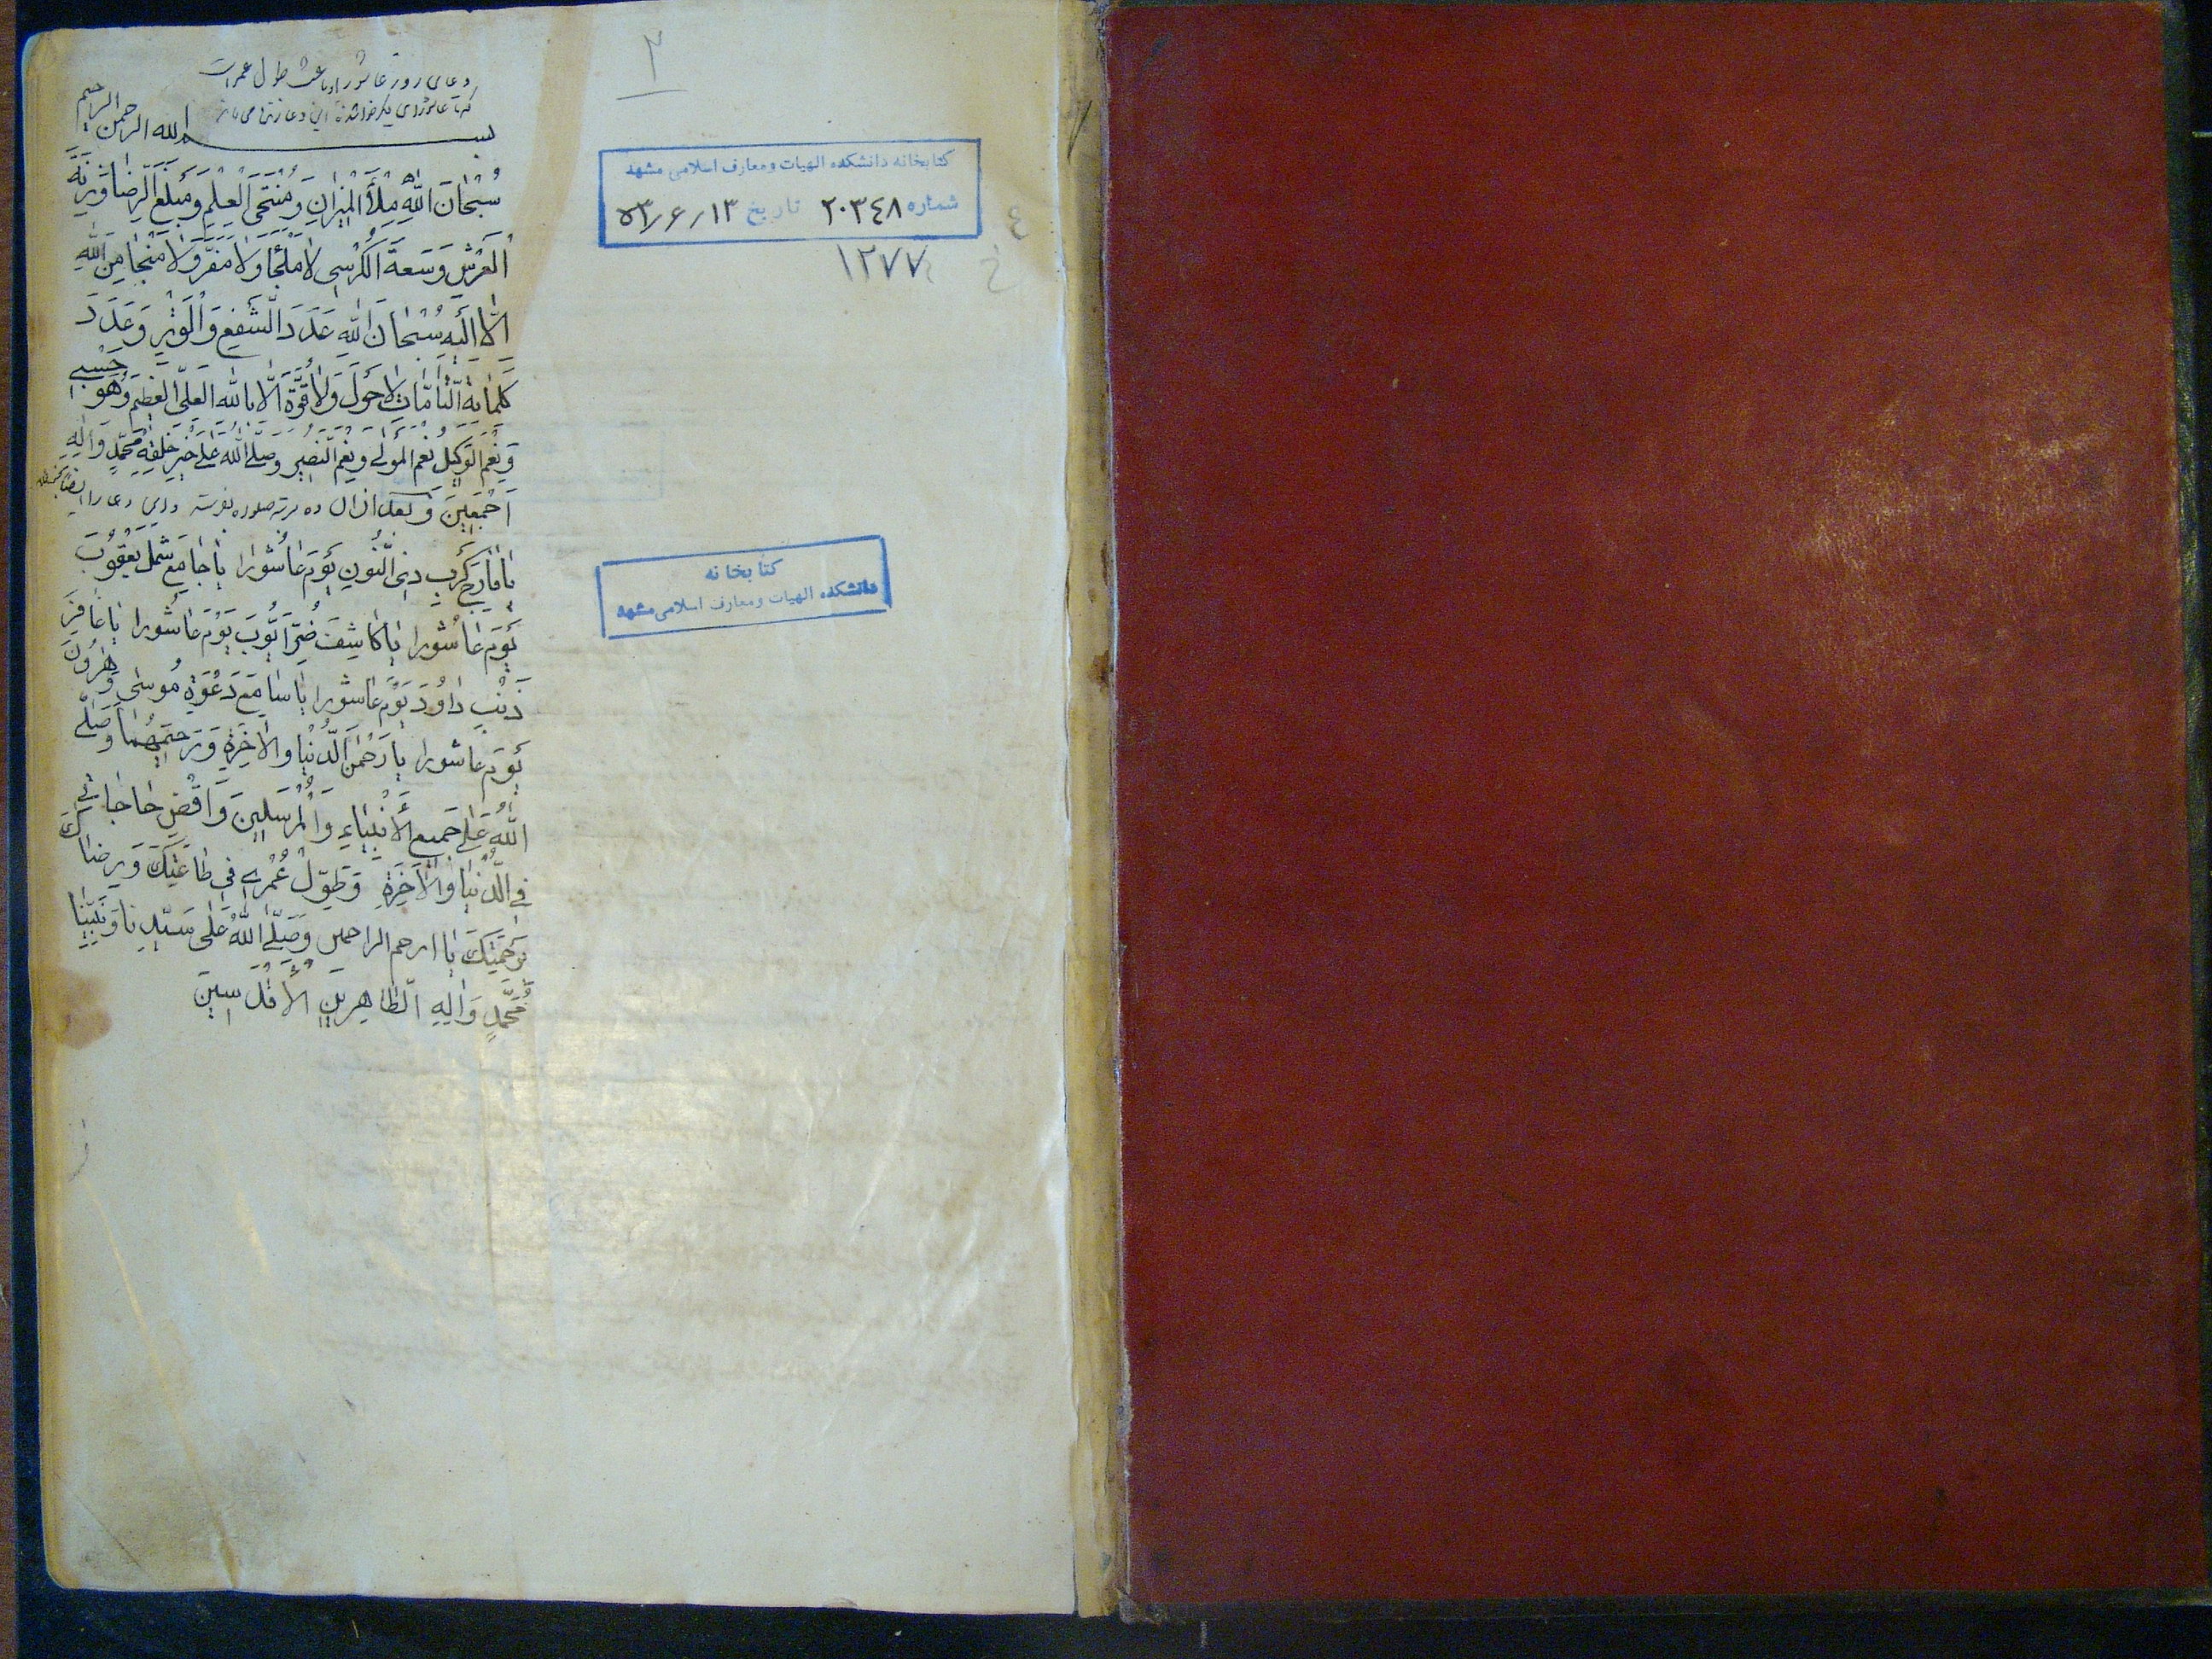 دعای روز عاشورا و باعث طول عمر است
که تا عاشورای دیگر خوانده این دعا زنده می ماند
بسم الله الرحمن الرحیم
سُبْحٰانَ اللّٰهِ مِلْأَ الْمٖیزٰانِ وَ مُنْتَهَی الْعِلْمِ وَ مَبْلَغَ الرِّضٰا وَ زِنَةَ
الْعَرْشِ وَ سَعَةَ الْکُرْسِی لاٰ مَلْجَأَ وَلاٰ مَفَرَّ وَلاٰ مَنْجٰا مِنَ اللّٰهِ
اِلّٰا اِلَیْهِ سُبْحٰانَ اللّٰهِ عَدَدَ الشَّفْعِ وَ الْوَتْرِ وَ عَدَدَ
کَلِمٰاتِهِ التّٰامّٰاتِ لاٰ حَوْلَ وَلاٰ قُوَّةَ اِلّٰا بِاللّٰهِ الْعَلِیِّ الْعَظِیمِ وَ هُوَ حَسْبِی
وَ نِعْمَ الْوَکِیلُ نِعْمَ الْمَوْلٰی وَ نِعْمَ النَّصِیرُ وَ صَلَّی اللّٰهُ عَلٰی خَیْرِ خَلْقِهِ مُحَمَّدٍ وَ اٰلِهِ
اَجْمَعِینَ وَ بَعْدَ از ان ده مرتبه صلوة بفرستد و این دعا را ایضا بخواند
یٰا فٰارِجَ کَرْبِ ذِی النُّونِ یَوْمَ عٰاشُورا یٰا جٰامِعَ شَمْلِ یَعْقُوبَ
یَوْمَ عٰاشُورا یٰا کٰاشِفَ ضُرِّ اَیُّوبَ یَوْمَ عٰاشُورا یٰا غٰافِرَ
ذَنْبِ دٰاوُدَ یَوْمَ عٰاشورا یٰا سٰامِعَ دَعْوَةِ مُوسٰی وَ هٰرُونَ
یَوْمَ عاشورا یٰا رَحْمٰنَ الدُّنْیٰا وَ الْاٰخِرَةِ وَ رَحِیمَهُمٰا وَ صَلَّی
اللّٰهُ عَلٰی جَمیعِ الْأَنْبِیٰاءِ وَ الْمُرْسَلِینَ وَ اقْضِ حٰاجٰاتِی
فِی الدُّنْیٰا وَ الْاٰخِرَةِ وَ طَوِّلْ عُمْرِی فِی طٰاعَتِکَ وَ رِضٰاکَ
بِرَحْمَتِکَ یٰا ارحم الراحمین وَ صَلَّی اللّٰهُ عَلٰی سَیِّدِنٰا وَ نَبِیِّنٰا
مُحَمَّدٍ وَ اٰلِهِ الطّٰاهِرِینَ الْأَقْدَسِینَ
۲
کتابخانه دانشکده الهیات و معارف اسلامی مشهد
شماره ۲۰۳٤۸ تاریخ ۵۳/۶/۱۳
٤
خ
۱۲۷۷
کتابخانه
دانشکده الهیات و معارف اسلامی مشهد